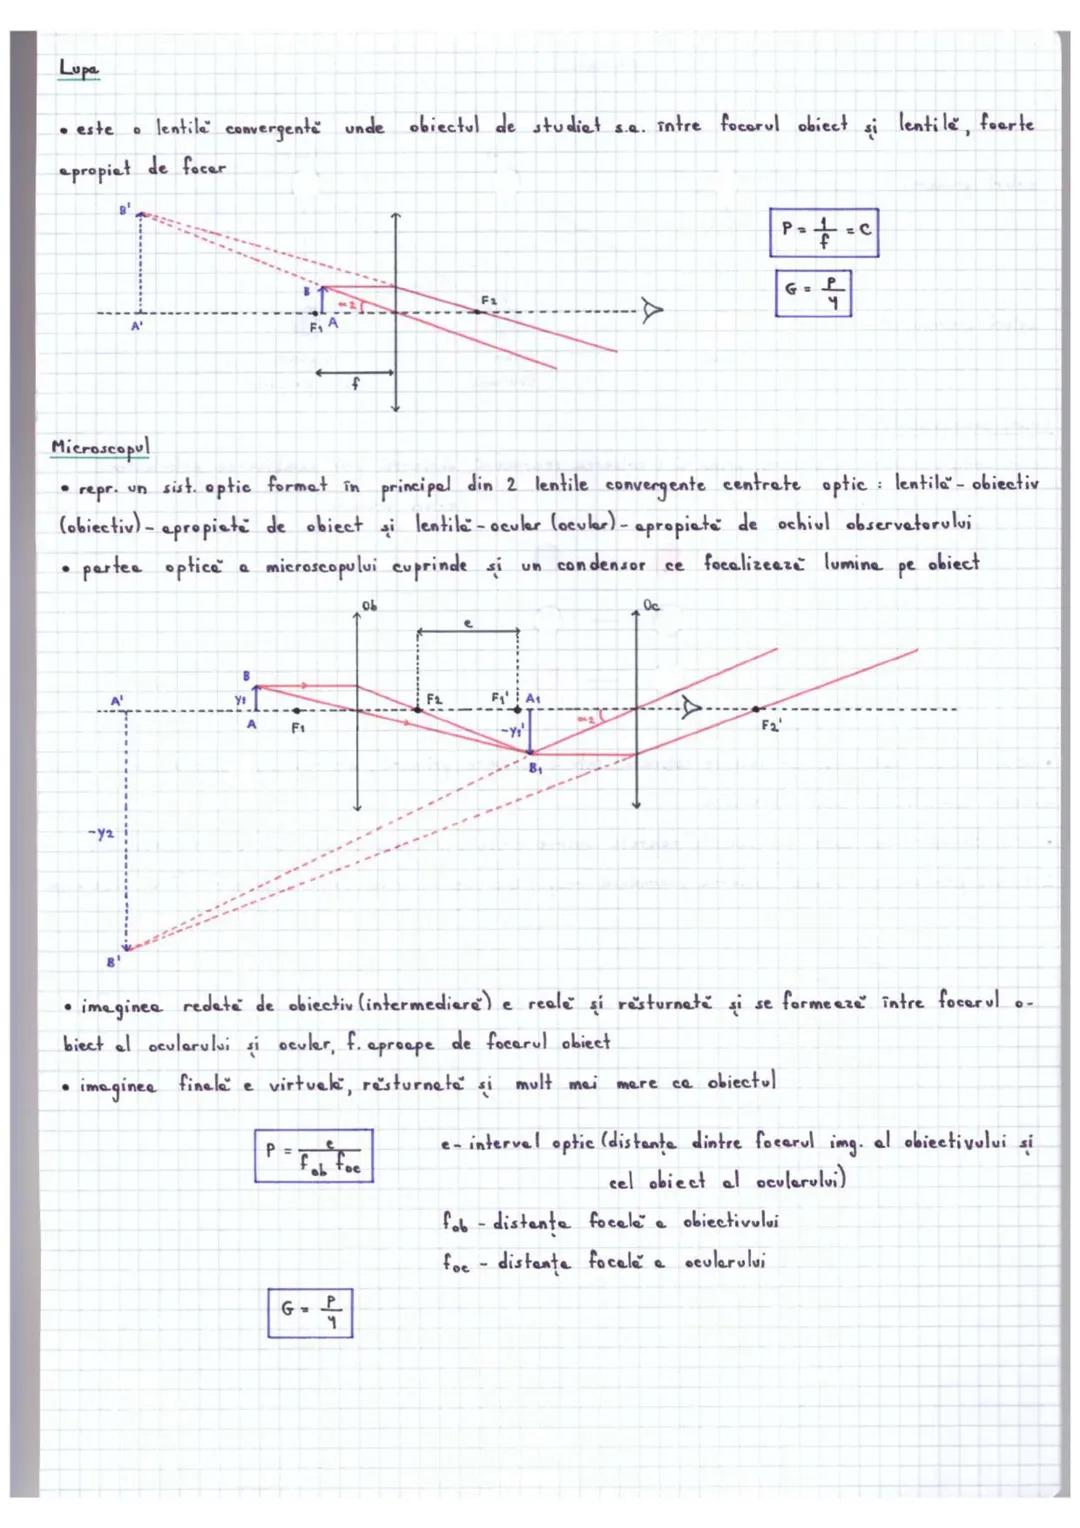 Lupa
• este o lentilă convergentă unde obiectul de studiat s.a. între focarul obiect și lentilă, foarte
apropiat de focar
B'
B
α2
F2
A'
F1 A
f
P = 1/f = C
G = P/4
Microscopul
• repr. un sist. optic format în principal din 2 lentile convergente centrate optic : lentilă - obiectiv
(obiectiv) - apropiată de obiect și lentilă - ocular (ocular) - apropiată de ochiul observatorului
• partea optică a microscopului cuprinde și un condensor ce focalizează lumina pe obiect
Ob
Oc
e
B
A'
y1
F2
F1'
A1
A
F1
-y1'
α2
F2'
B1
-y2
B'
• imaginea redată de obiectiv (intermediară) e reală și răsturnată și se formează între focarul o-
biect al ocularului și ocular, f. aproape de focarul obiect
• imaginea finală e virtuală, răsturnată și mult mai mare ca obiectul
P = e/fob foc
e - interval optic (distanța dintre focarul img. al obiectivului și
cel obiect al ocularului)
fob - distanța focală a obiectivului
foc - distanța focală a ocularului
G = P/4